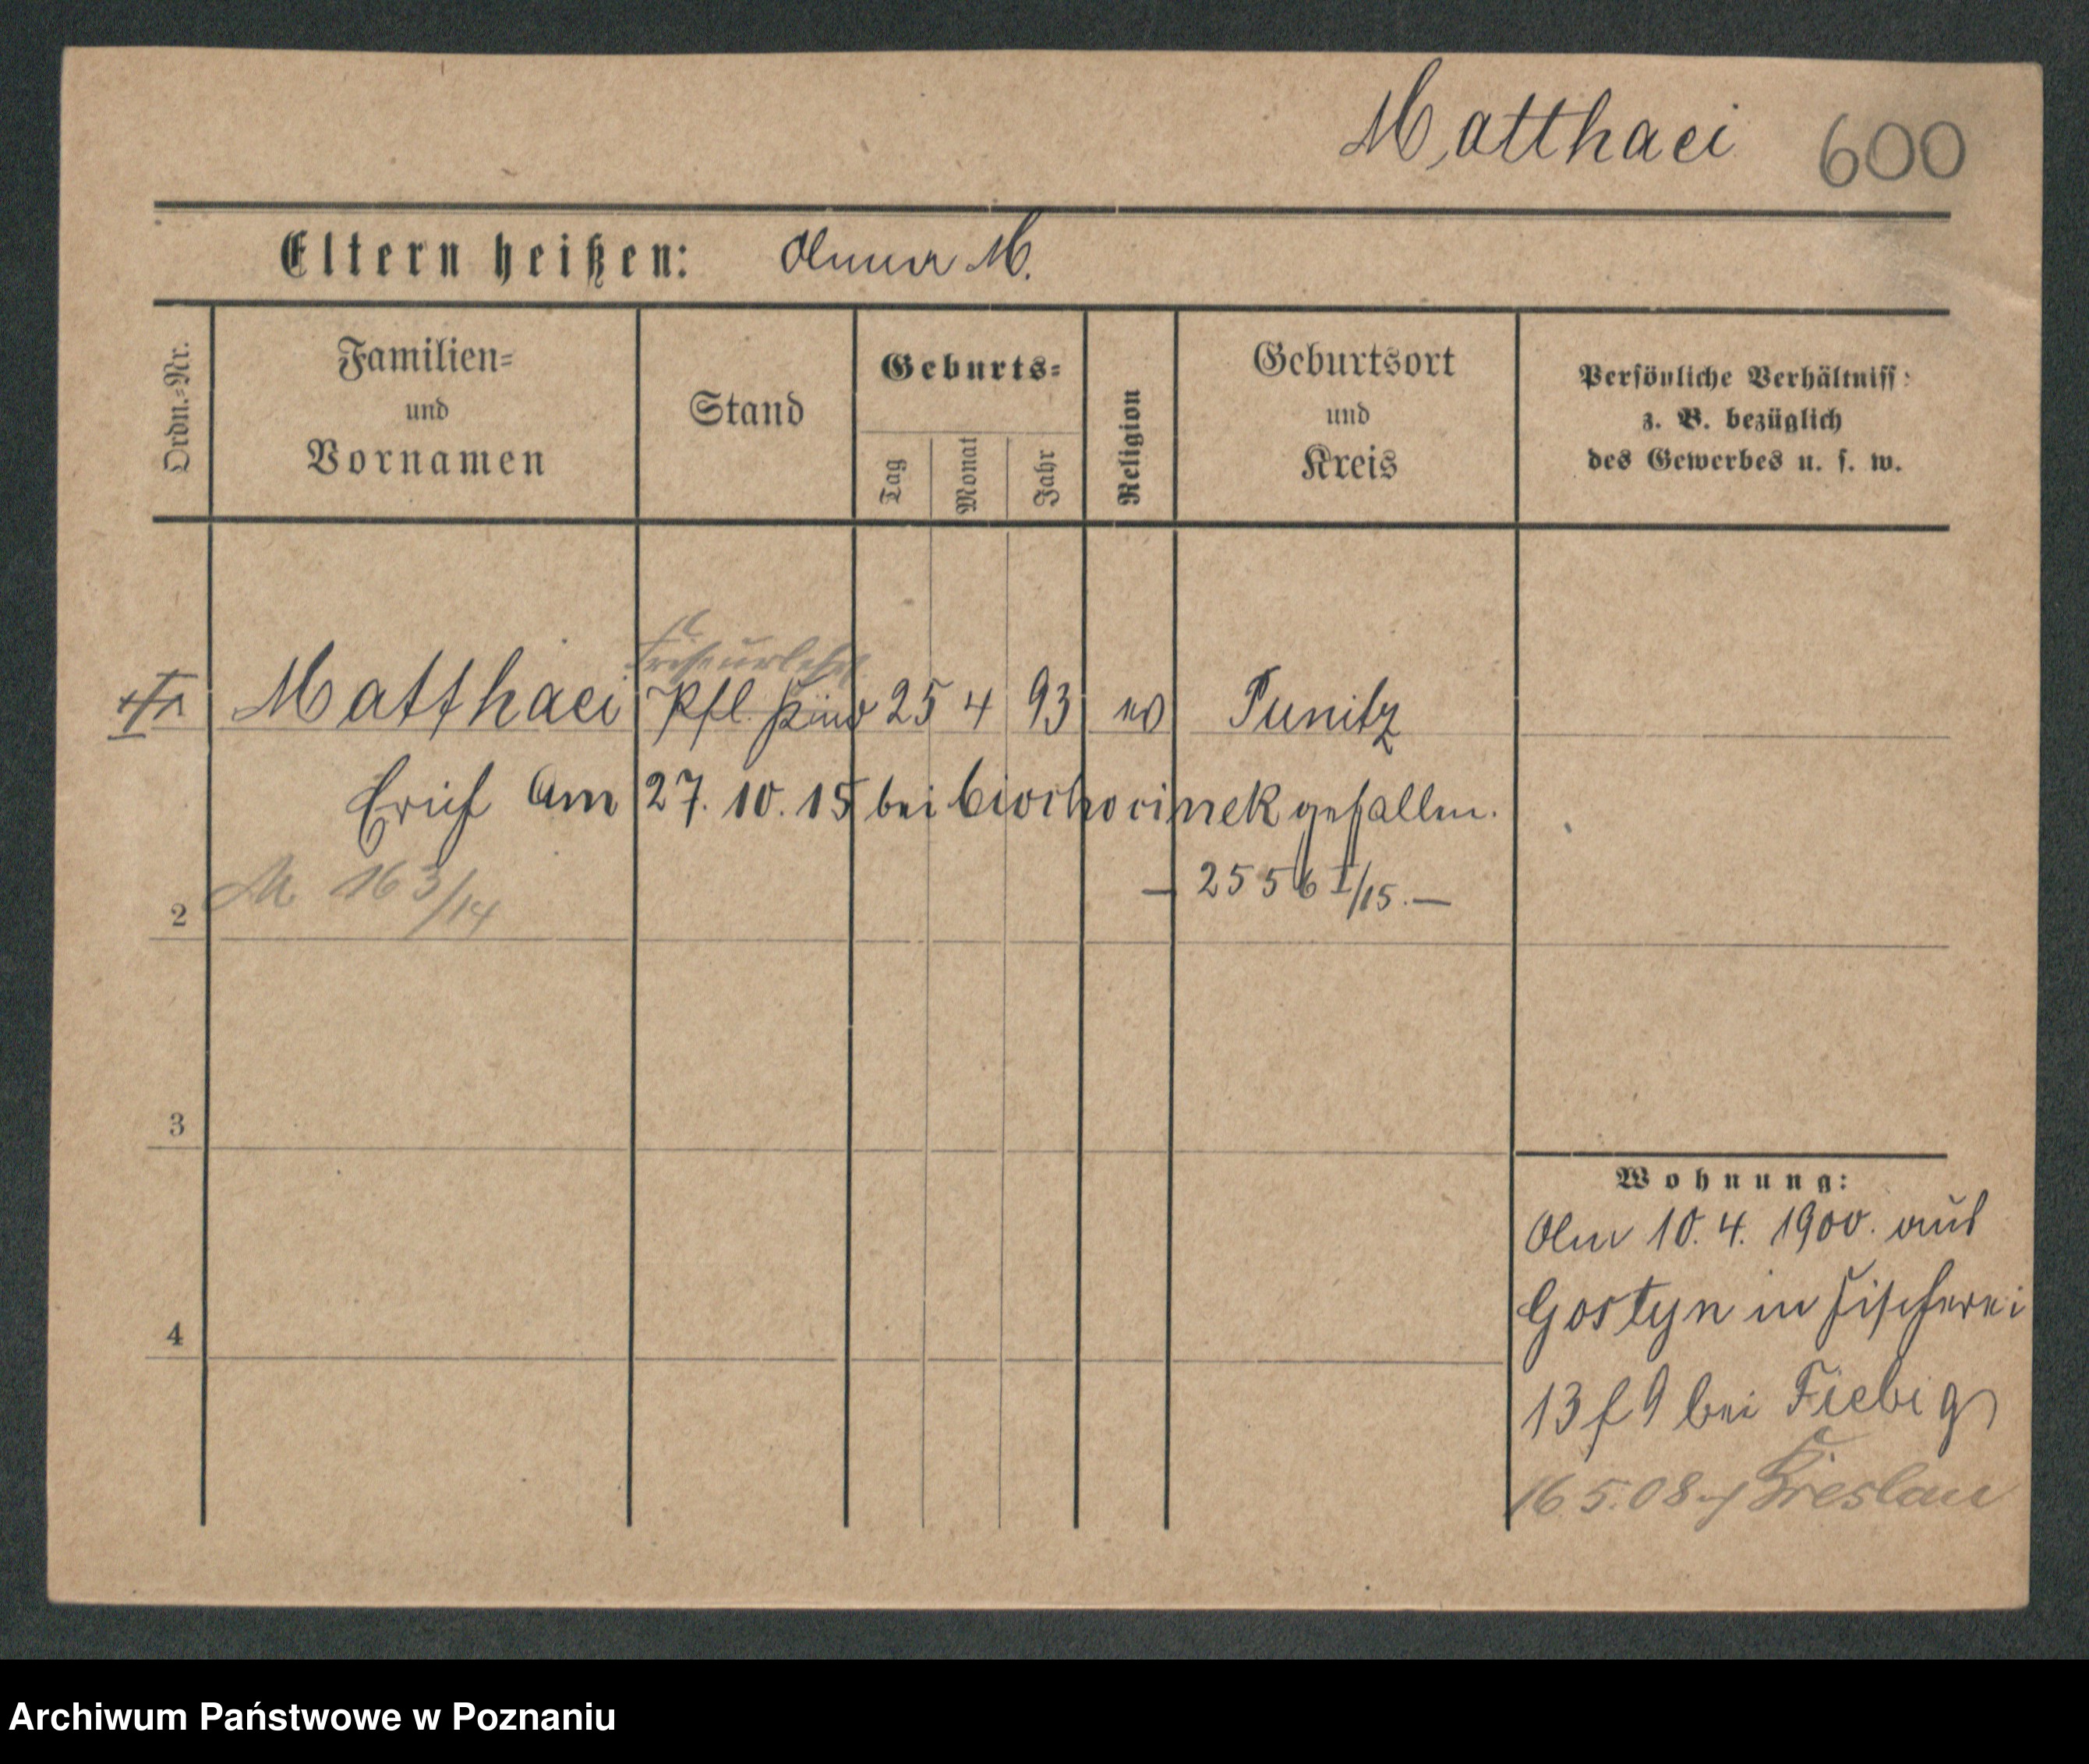 Matthaei 600
Eltern heißen: Anna M.
Ordn.-Nr.
Familien-
und
Vornamen
Stand
Geburts-
Tag
Monat
Jahr
Religion
Geburtsort
und
Kreis
Persönliche Verhältniss
z. B. bezüglich
des Gewerbes u. s. w.
Friseurlehrl
Matthaei Pfl. Kind 25 4 93 ev Punitz
Erich Am 27. 10. 15 bei Ciechocinek gefallen.
M. 163/14
— 2556 I/15. —
2
3
4
Wohnung:
Am 10. 4. 1900. aus
Gostyn in Fischerei
13 f 9 bei Fiebig
16 5. 08 Breslau
Archiwum Państwowe w Poznaniu